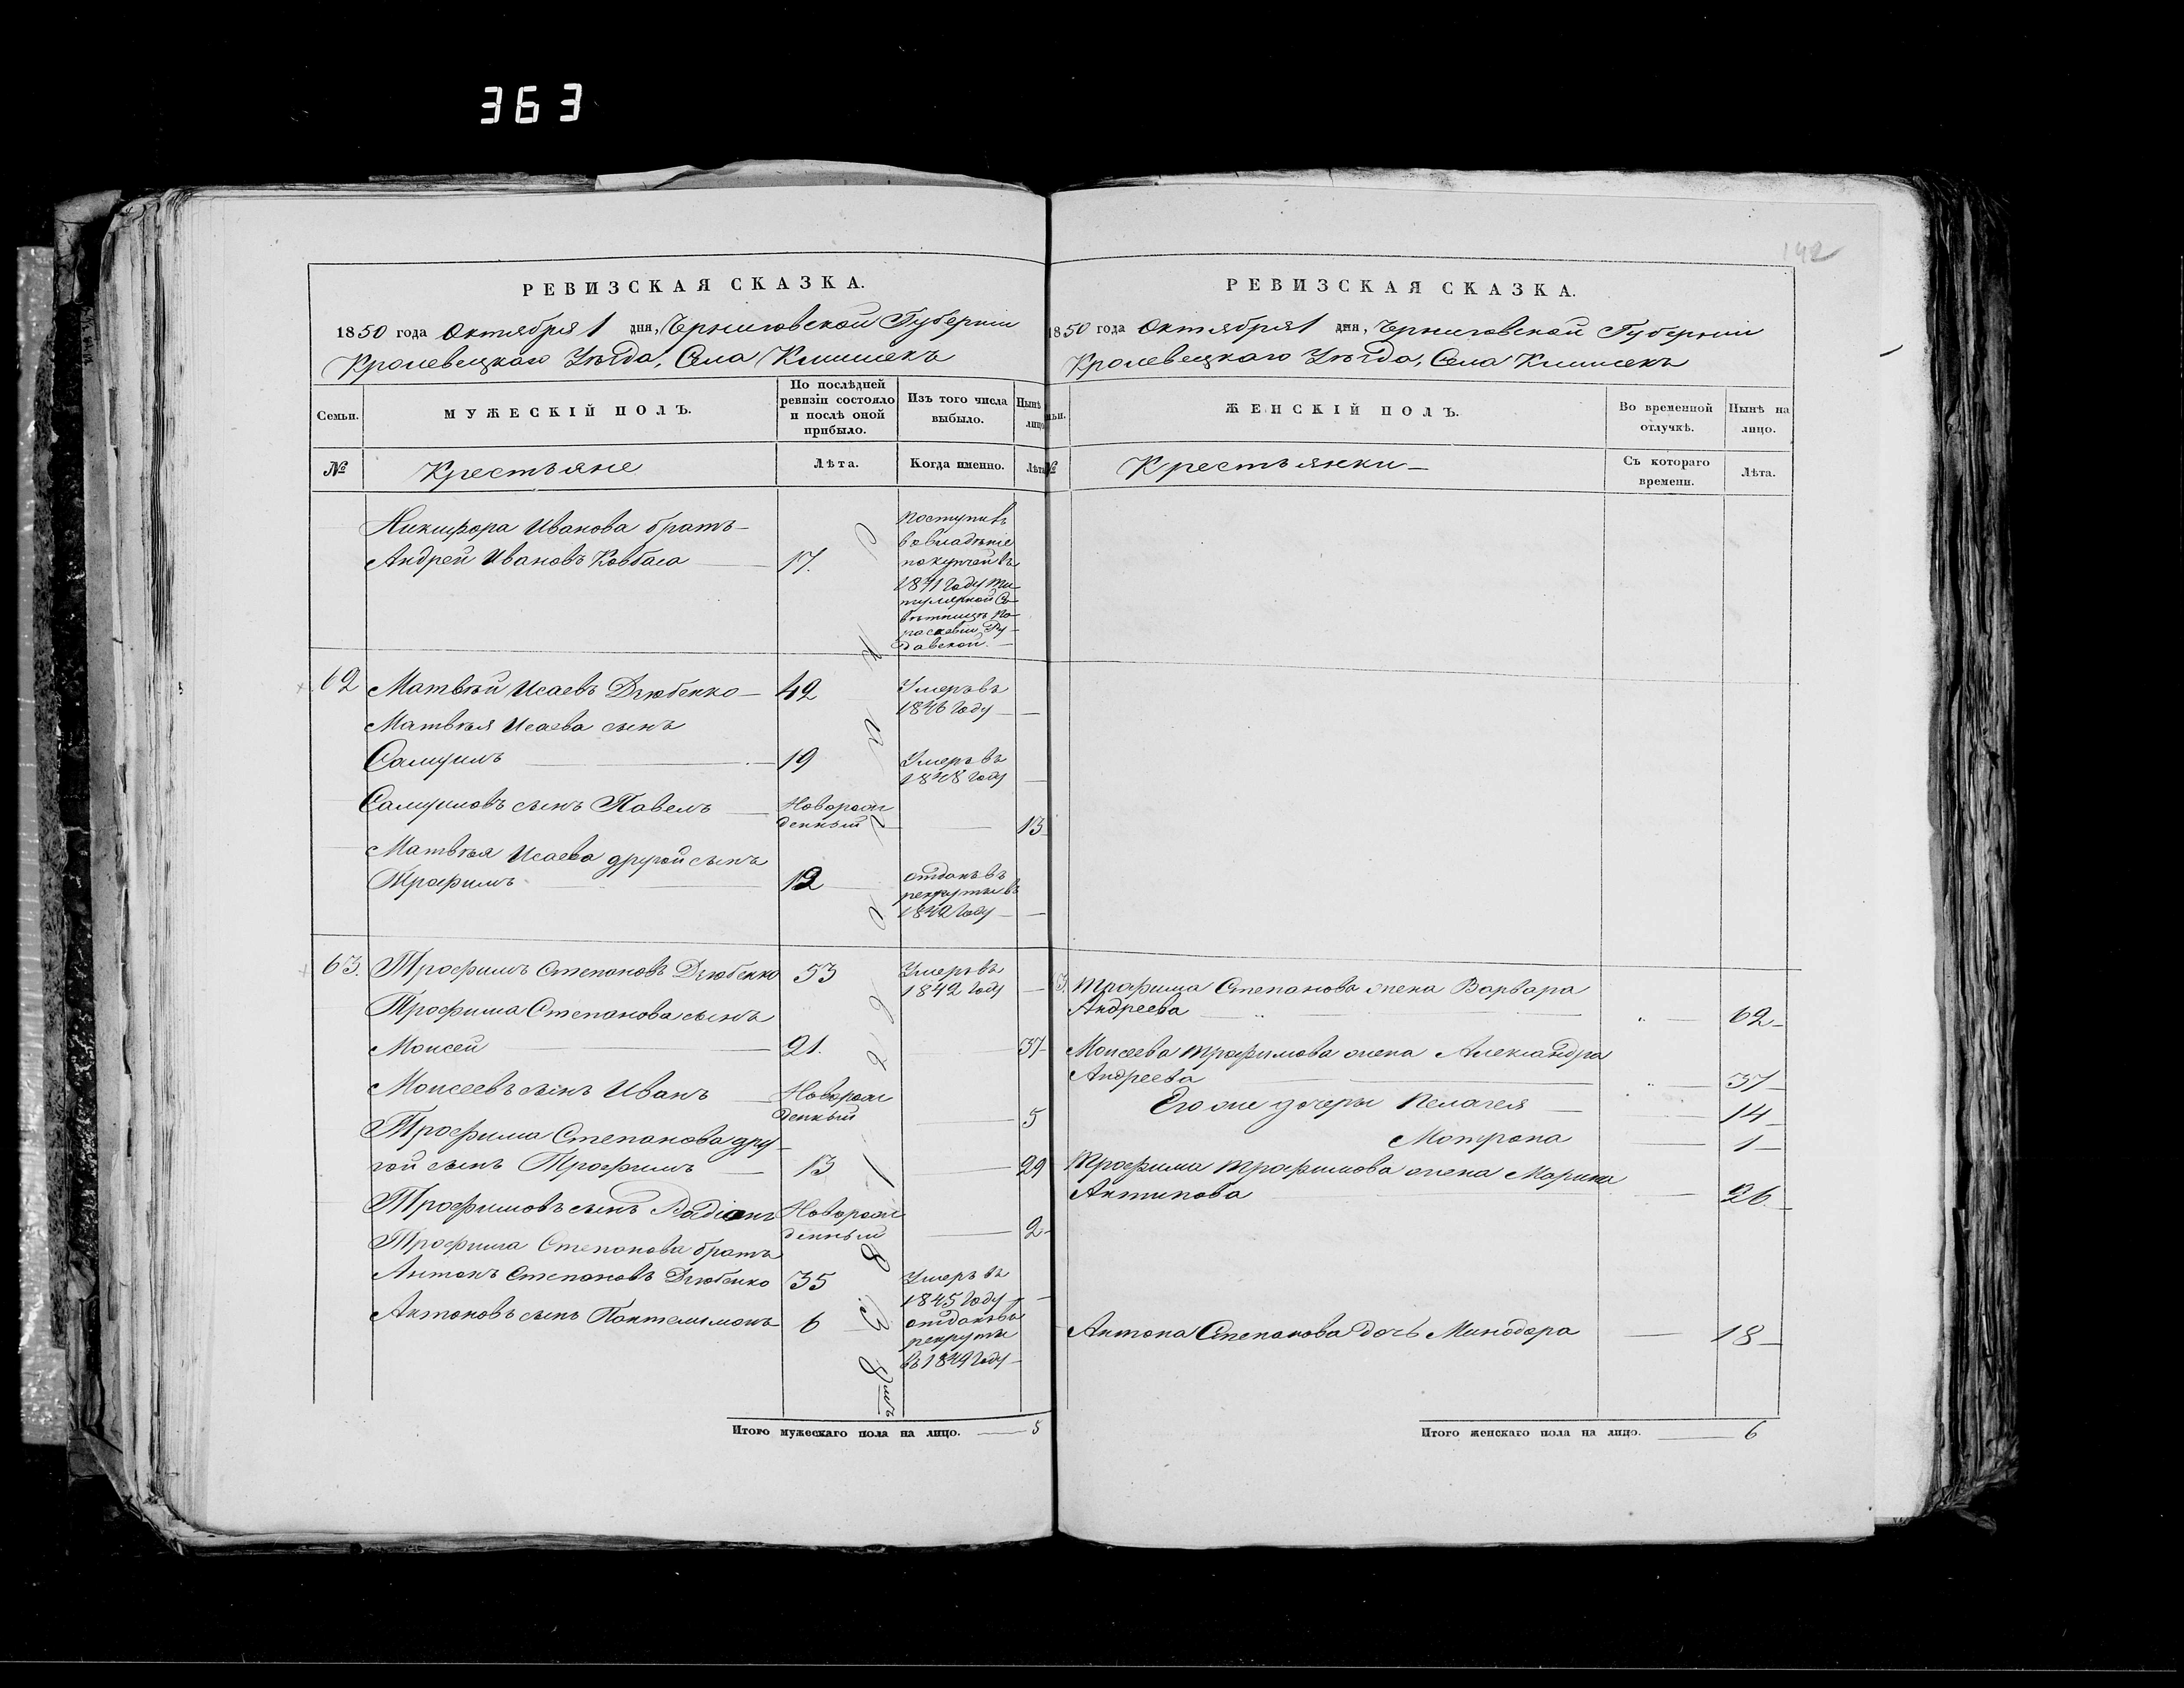 363
142
РЕВИЗСКАЯ СКАЗКА.
1850 года Октября 1 дня, Черниговской Губерніи
Кролевецкаго Уѣзда, Села Клишекъ
Семьи.
МУЖЕСКІЙ ПОЛЪ.
По послѣдней
ревизіи состояло
и послѣ оной
прибыло.
Изъ того числа
выбыло.
Нынѣ
лицо
№
Крестьяне
Лѣта.
Когда именно.
Лѣта
Никифора Иванова братъ
Андрей Ивановъ Ковбаса 17.
Поступивъ
во владѣніе
по купчей въ
1841 году Ти-
тулярной Со-
вѣтницѣ Па-
раскевіи Ру-
давской.
62 Матвѣй Исаевъ Дзюбенко 42 Умеръ въ
1846 году —
Матвѣя Исаева сынъ
Самуилъ 19 Умеръ въ
1848 году —
Самуиловъ сынъ Павелъ Новорож
денный — 13
Матвѣя Исаева другой сынъ
Трофимъ 12 отданъ въ
рекруты въ
1842 году —
63. Трофимъ Степановъ Дзюбенко 53 Умеръ въ
1842 году —
Трофима Степанова сынъ
Моисей 21. — 37
Моисеевъ сынъ Иванъ Новорож
денный — 5
Трофима Степанова дру-
гой сынъ Трофимъ 13 — 29
Трофимовъ сынъ Радіонъ Новорож
денный — 2
Трофима Степанова братъ
Антонъ Степановъ Дзюбенко 35 Умеръ въ
1845 году —
Антоновъ сынъ Пантелимонъ 6 отданъ въ
рекруты
въ 1849 году —
Итого мужескаго пола на лицо. — 5
РЕВИЗСКАЯ СКАЗКА.
1850 года Октября 1 дня, Черниговской Губерніи
Кролевецкаго Уѣзда, Села Клишекъ
ЖЕНСКІЙ ПОЛЪ.
Во временной
отлучкѣ.
Нынѣ на
лицо.
№
Крестьянки —
Съ котораго
времени.
Лѣта.
63. Трофима Степанова жена Варвара
Андреева — 62
Моисеева Трофимова жена Александра
Андреева — 37
Его же дочери Пелагея — 14
Мотрона — 1
Трофима Трофимова жена Марина
Антипова — 26
Антона Степанова дочь Минодора — 18
Итого женскаго пола на лицо. — 6